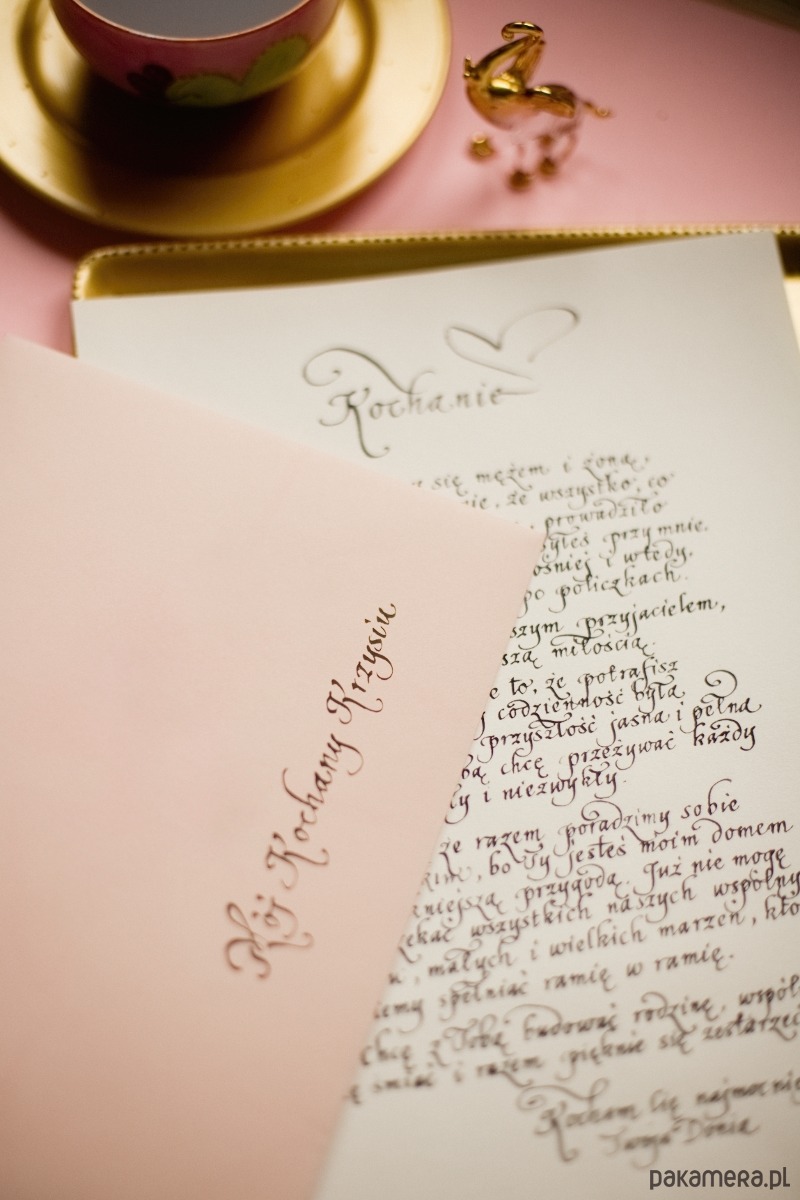 Kochanie
się mężem i żoną,
że wszystko, co
prowadziło
byłeś przy mnie.
ośniej i wtedy,
po policzkach.
szym przyjacielem,
szą miłością.
to, że potrafisz
codzienność była
przyszłość jasna i pełna
bą chcę przeżywać każdy
ły i niezwykły.
że razem poradzimy sobie
kim, bo Ty jesteś moim domem
kniejszą przygodą. Już nie mogę
zekać wszystkich naszych wspólny
małych i wielkich marzeń, któ
emy spełniać ramię w ramię.
chcę z Tobą budować rodzinę, wspól
śmiać i razem pięknie się zestarzeć
Kocham Cię najmocnie
Twoja Donia
Mój Kochany Krzysiu
pakamera.pl